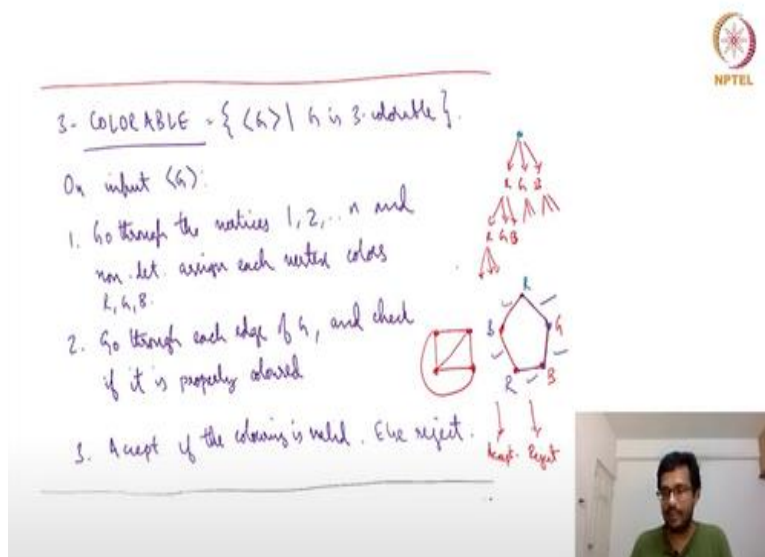 NPTEL
3- COLORABLE = { <G> | G is 3-colorable }.
On input <G>:
1. Go through the vertices 1, 2, .. n and
non-det. assign each vertex colors
R, G, B.
2. Go through each edge of G, and check
if it is properly coloured
3. Accept if the colouring is valid. Else reject.
R G B
R G B
R
B G
R B
Accept Reject